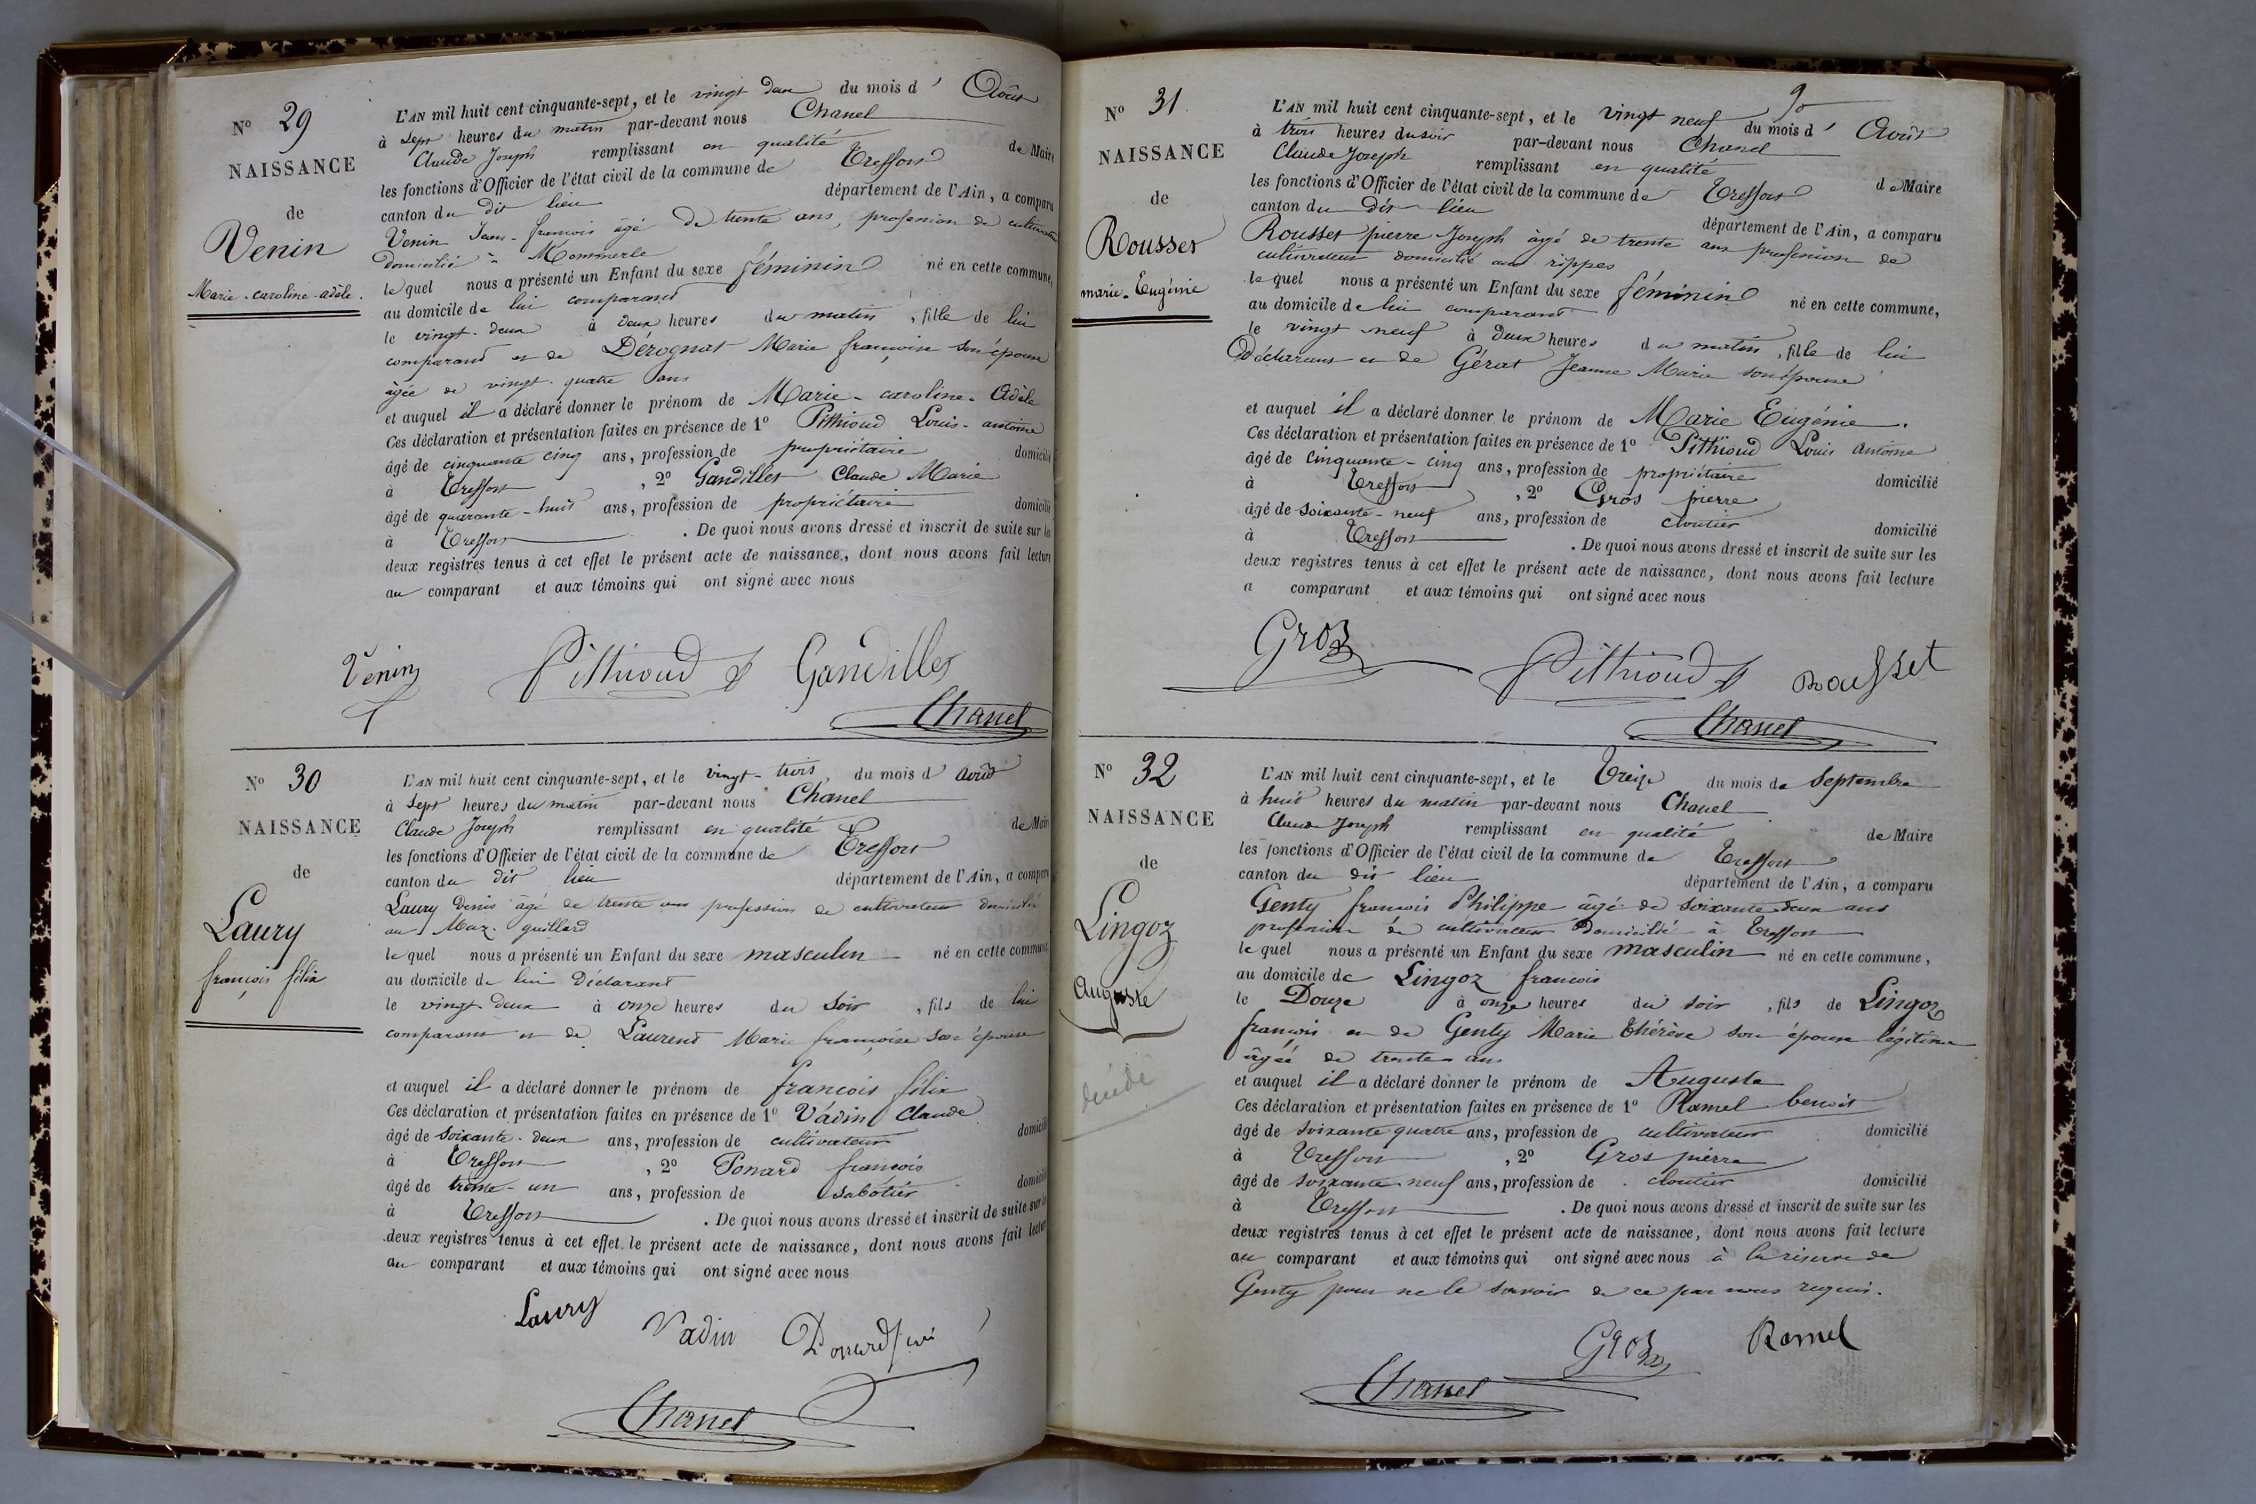 N° 29
NAISSANCE
de
Venin
Marie-caroline-adèle.
L'AN mil huit cent cinquante-sept, et le vingt deux du mois d' Août
à sept heures du matin par-devant nous Chanel
Claude Joseph remplissant en qualité de Maire
les fonctions d'Officier de l'état civil de la commune de Treffort
canton du dit lieu département de l'Ain, a comparu
Venin Jean-francois âgé de trente ans, profession de cultivateur
domicilié à Mommerle
lequel nous a présenté un Enfant du sexe féminin né en cette commune,
au domicile de lui comparant
le vingt-deux à deux heures du matin, fille de lui
comparant et de Dérognat Marie françoise son épouse
âgée de vingt-quatre ans
et auquel il a déclaré donner le prénom de Marie-caroline-Adèle
Ces déclaration et présentation faites en présence de 1° Pitthioud Louis-antoine
âgé de cinquante cinq ans, profession de propriétaire domicilié
à Treffort, 2° Gandillet Claude Marie
âgé de quarante-huit ans, profession de propriétaire domicilié
à Treffort. De quoi nous avons dressé et inscrit de suite sur les
deux registres tenus à cet effet le présent acte de naissance, dont nous avons fait lecture
au comparant et aux témoins qui ont signé avec nous
Venin Pitthioud Gandillet
Chanel
N° 30
NAISSANCE
de
Laury
françois félix
L'AN mil huit cent cinquante-sept, et le vingt-trois, du mois d' août
à sept heures du matin par-devant nous Chanel
Claude Joseph remplissant en qualité de Maire
les fonctions d'Officier de l'état civil de la commune de Treffort
canton du dit lieu département de l'Ain, a comparu
Laury Denis âgé de trente ans profession de cultivateur domicilié
au Maz-guillard
lequel nous a présenté un Enfant du sexe masculin né en cette commune,
au domicile de lui Déclarant
le vingt-deux à onze heures du soir, fils de lui
comparant et de Laurent Marie françoise son épouse
et auquel il a déclaré donner le prénom de francois félix
Ces déclaration et présentation faites en présence de 1° Vadin Claude
âgé de soixante-deux ans, profession de cultivateur domicilié
à Treffort, 2° Ponard francois
âgé de trente-un ans, profession de sabotier domicilié
à Treffort. De quoi nous avons dressé et inscrit de suite sur les
deux registres tenus à cet effet le présent acte de naissance, dont nous avons fait lecture
au comparant et aux témoins qui ont signé avec nous
Laury Vadin Ponard
Chanel
N° 31
NAISSANCE
de
Rousset
marie-Eugénie
L'AN mil huit cent cinquante-sept, et le vingt neuf du mois d' Août
à trois heures du soir par-devant nous Chanel
Claude Joseph remplissant en qualité de Maire
les fonctions d'Officier de l'état civil de la commune de Treffort
canton du dit lieu département de l'Ain, a comparu
Rousset pierre Joseph âgé de trente ans profession de
cultivateur domicilié aux rippes
lequel nous a présenté un Enfant du sexe féminin né en cette commune,
au domicile de lui comparant
le vingt neuf à deux heures du matin, fille de lui
Déclarant et de Gérat Jeanne Marie son épouse
et auquel il a déclaré donner le prénom de Marie Eugénie.
Ces déclaration et présentation faites en présence de 1° Pitthioud Louis antoine
âgé de cinquante-cinq ans, profession de propriétaire domicilié
à Treffort, 2° Gros pierre
âgé de soixante-neuf ans, profession de cloutier domicilié
à Treffort. De quoi nous avons dressé et inscrit de suite sur les
deux registres tenus à cet effet le présent acte de naissance, dont nous avons fait lecture
a comparant et aux témoins qui ont signé avec nous
Groz Pitthioud Rousset
Chanel
N° 32
NAISSANCE
de
Lingoz
Auguste
décédé
L'AN mil huit cent cinquante-sept, et le Treize du mois de Septembre
à huit heures du matin par-devant nous Chanel
Claude Joseph remplissant en qualité de Maire
les fonctions d'Officier de l'état civil de la commune de Treffort
canton du dit lieu département de l'Ain, a comparu
Genty francois Philippe âgé de soixante deux ans
profession de cultivateur Domicilié à Treffort
lequel nous a présenté un Enfant du sexe masculin né en cette commune,
au domicile de Lingoz francois
le Douze à onze heures du soir, fils de Lingoz
françois et de Genty Marie Thérèse son épouse légitime
âgée de trente ans
et auquel il a déclaré donner le prénom de Auguste
Ces déclaration et présentation faites en présence de 1° Ramel benoit
âgé de soixante quatre ans, profession de cultivateur domicilié
à Treffort, 2° Gros pierre
âgé de soixante-neuf ans, profession de cloutier domicilié
à Treffort. De quoi nous avons dressé et inscrit de suite sur les
deux registres tenus à cet effet le présent acte de naissance, dont nous avons fait lecture
au comparant et aux témoins qui ont signé avec nous à la réserve de
Genty pour ne le savoir de ce par nous requis.
Groz Ramel
Chanel